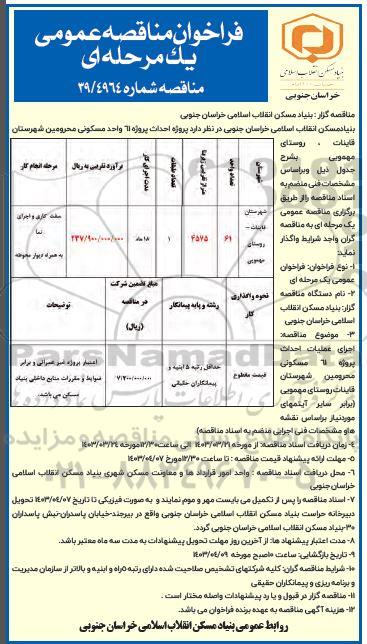 فراخوان مناقصه عمومی
یک مرحله ای
مناقصه شماره ۳۹/۴۹۶۴
بنیاد مسکن انقلاب اسلامی
خراسان جنوبی
مناقصه گزار : بنیاد مسکن انقلاب اسلامی خراسان جنوبی
بنیادمسکن انقلاب اسلامی خراسان جنوبی در نظر دارد پروژه احداث پروژه ۶۱ واحد مسکونی محرومین شهرستان
قاینات ، روستای
مهمویی بشرح
جدول ذیل وبراساس
مشخصات فنی منضم به
اسناد مناقصه رااز طریق
برگزاری مناقصه عمومی
یک مرحله ای به مناقصه
گران واجد شرایط واگذار
نماید:
۱- نوع فراخوان: فراخوان
عمومی یک مرحله ای
۲- نام دستگاه مناقصه
گزار: بنیاد مسکن انقلاب
اسلامی خراسان جنوبی
۳- موضوع مناقصه:
اجرای عملیات احداث
پروژه ۶۱ مسکونی
محرومین شهرستان
قاینات روستای مهمویی
(برابر سایر آیتمهای
موردنیاز براساس نقشه
شهرستان
تعداد واحد
متراژ تقریبی زیربنا
تعداد طبقات
مدت اجرای کار
برآورد تقریبی به ریال
مرحله انجام کار
شهرستان
قاینات –
روستای
مهمویی
۶۱
۴۵۷۵
۱
۱۸ ماه
۲۳۷/۹۰۰/۰۰۰/۰۰۰
سفت کاری و اجرای
نما
به همراه دیوار محوطه
نحوه واگذاری
کار
رشته و پایه پیمانکار
مبلغ تضمین شرکت
در مناقصه
(ریال)
توضیحات
قیمت مقطوع
حداقل رتبه ۵ ابنیه و
پیمانکاران حقیقی
۷/۲۰۰/۰۰۰/۰۰۰
اعتبار پروژه غیر عمرانی و برابر
ضوابط و مقررات منابع داخلی بنیاد
مسکن می باشد.
ها و مشخصات فنی اجرایی منضم به اسناد مناقصه)
۴- زمان دریافت اسناد مناقصه: از مورخه ۱۴۰۳/۰۳/۲۱ الی ساعت۱۲/۳۰مورخه ۱۴۰۳/۰۳/۲۴
۵- مهلت ارائه پیشنهاد قیمت مناقصه : تا ساعت ۱۲/۳۰مورخ ۱۴۰۳/۰۴/۰۷
۶- محل دریافت اسناد مناقصه : واحد امور قرارداد ها و معاونت مسکن شهری بنیاد مسکن انقلاب اسلامی
خراسان جنوبی
۷- اسناد مناقصه را پس از تکمیل می بایست مهر و موم نمایند و به صورت فیزیکی تا تاریخ ۱۴۰۳/۰۴/۰۷تحویل
دبیرخانه حراست بنیاد مسکن انقلاب اسلامی خراسان جنوبی واقع در بیرجند-خیابان پاسداران-نبش پاسداران
۳۰-بنیاد مسکن انقلاب اسلامی خراسان جنوبی گردد.
۸- مدت اعتبار پیشنهاد ها: از آخرین روز مهلت تحویل پیشنهادات به مدت سه ماه معتبر باشد.
۹- تاریخ بازگشایی: ساعت ۱۰صبح مورخه ۱۴۰۳/۰۴/۰۹
۱۰- شرایط مناقصه گران: کلیه شرکتهای تشخیص صلاحیت شده دارای رتبه ۵راه و ابنیه و بالاتر از سازمان مدیریت
و برنامه ریزی و پیمانکاران حقیقی
۱۱- مناقصه گزار در قبول و یا رد پیشنهادات واصله مختار است .
۱۲- هزینه آگهی مناقصه به عهده برنده فراخوان می باشد.
روابط عمومی بنیاد مسکن انقلاب اسلامی خراسان جنوبی